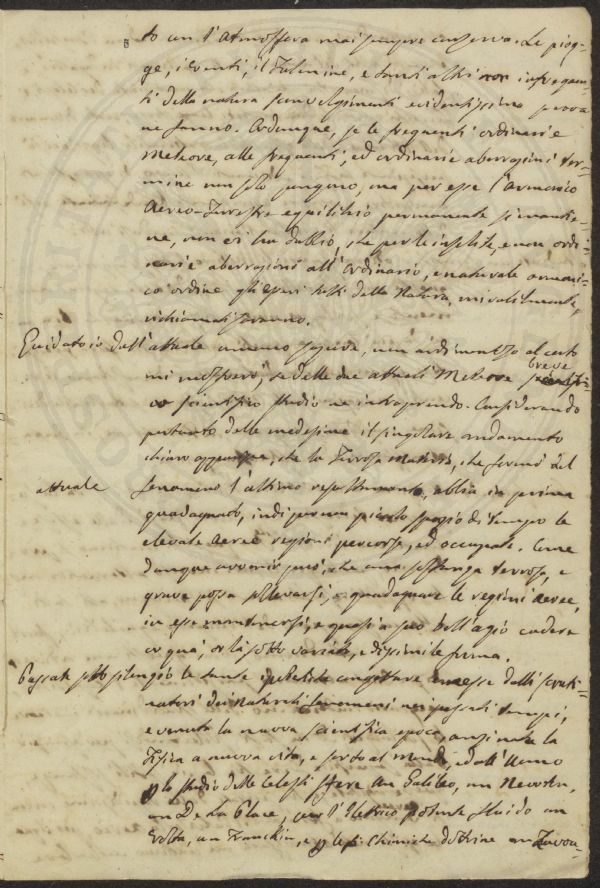 to un l'Atmosfera mai sempre conserva. Le piog-
ge, i venti, il Fulmine, e tanti altri non infrequen-
ti della natura sconvolgimenti evidentissima prova
ne fanno. Adunque, se le frequenti ordinarie
Meteore, alle frequenti, ed ordinarie aberrazioni ter-
mine non solo pongono, ma per esse l'armonico
Aereo-Terrestre equilibrio permanente si mantie-
ne, non vi ha dubbio, che per le insolite, e non ordi-
narie aberrazioni all'ordinario, e naturale armoni-
co ordine gli esseri tutti della Natura, mirabilmente,
richiamati saranno.
Guidato io dall'attuale umano sapere, non ardimentoso al certo
mi mostrerò, se delle due attuali Meteore breve
scientifico studio ne intraprendo. Considerando
pertanto delle medesime il singolare andamento
chiaro apparisce, che la Terrosa Materia, che formò del
attuale fenomeno l'ultimo risultamento, abbia in prima
guadagnato, indi per non piccolo spazio di tempo le
elevate aeree regioni percorse, ed occupate. Come
dunque avvenir può, che una sostanza terrosa, e
grave possa sollevarsi, e guadagnare le regioni aeree,
in esse mantenersi, e quasi a suo bell'agio cadere
or quà, or là sotto variata, e dissimile forma.
Passate sotto silenzio le tante ipotetiche congetture emesse dalli scruti-
natori dei Naturali fenomeni nei passati tempi,
e venuta la nuova scientifica epoca, ove nata la
Fisica a nuova vita, e sorto al mondo, ed all'Uomo
p lo studio delle Celesti sfere un Galileo, un Newton,
un De La Place, per l'Elettrico potente fluido un
Volta, un Franklin, e p le Chimiche dottrine un Lavoi-